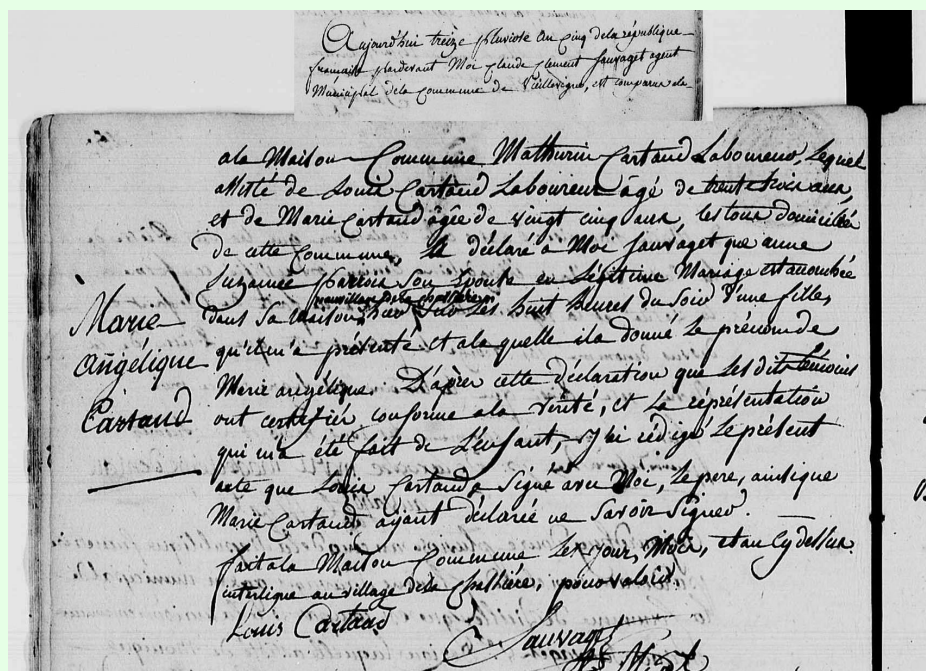 Aujourd'hui treize pluviose an cinq de la république
française pardevant Moi Claude Clement Sauvaget agent
Municipal de la Commune de Vieillevigne, est comparu a la
a la Maison Commune Mathurin Cartaud Laboureur, Lequel
assisté de Louis Cartaud Laboureur âgé de trente trois ans,
et de Marie Cartaud âgée de vingt cinq ans, les tous domiciliés
de cette Commune, Il a déclaré à Moi Sauvaget que anne
Suzanne son Epouse en Légitime Mariage est accouchée
au village de la
dans sa maison, hier les huit heures du soir d'une fille,
Marie
qu'il m'a présenté et a laquelle il a donné le prénom de
angélique
Marie angélique. D'après cette déclaration que les dits temoins
Cartaud
ont certifiér conforme a la vérité, et la représentation
qui m'a été fait de L'enfant, j'ai rédigé le présent
acte que Louis Cartaud a Signé avec Moi, le pere, ainsi que
Marie Cartaud ayant déclarée ne Savoir Signer.
fait a la Maison Commune les jour, Mois, et an cy dessus
interligne au village de la, pour valoir.
Louis Cartaud
Sauvaget